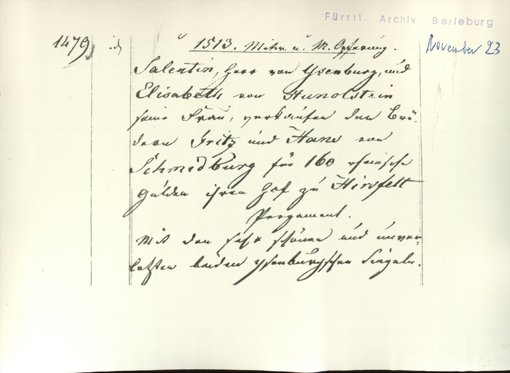 Fürstl. Archiv Berleburg
November 23
1479.
1513. Mitw. n. M. Opferung.
Salentin, Herr von Ysenburg, und
Elisabeth von Hunolstein
seine Frau, verkaufen den Brü-
dern Fritz und Hans von
Schmidburg für 160 rheinische
Gulden ihren Hof zu Hirsfelt
Pergament.
Mit den sehr schönen und unver-
letzten beiden Ysenburgischen Siegeln.